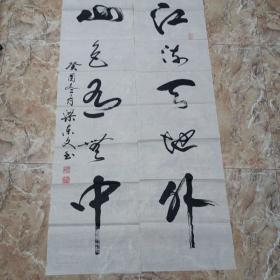 江流天地外
山色有無中
癸酉冬月梁东文书